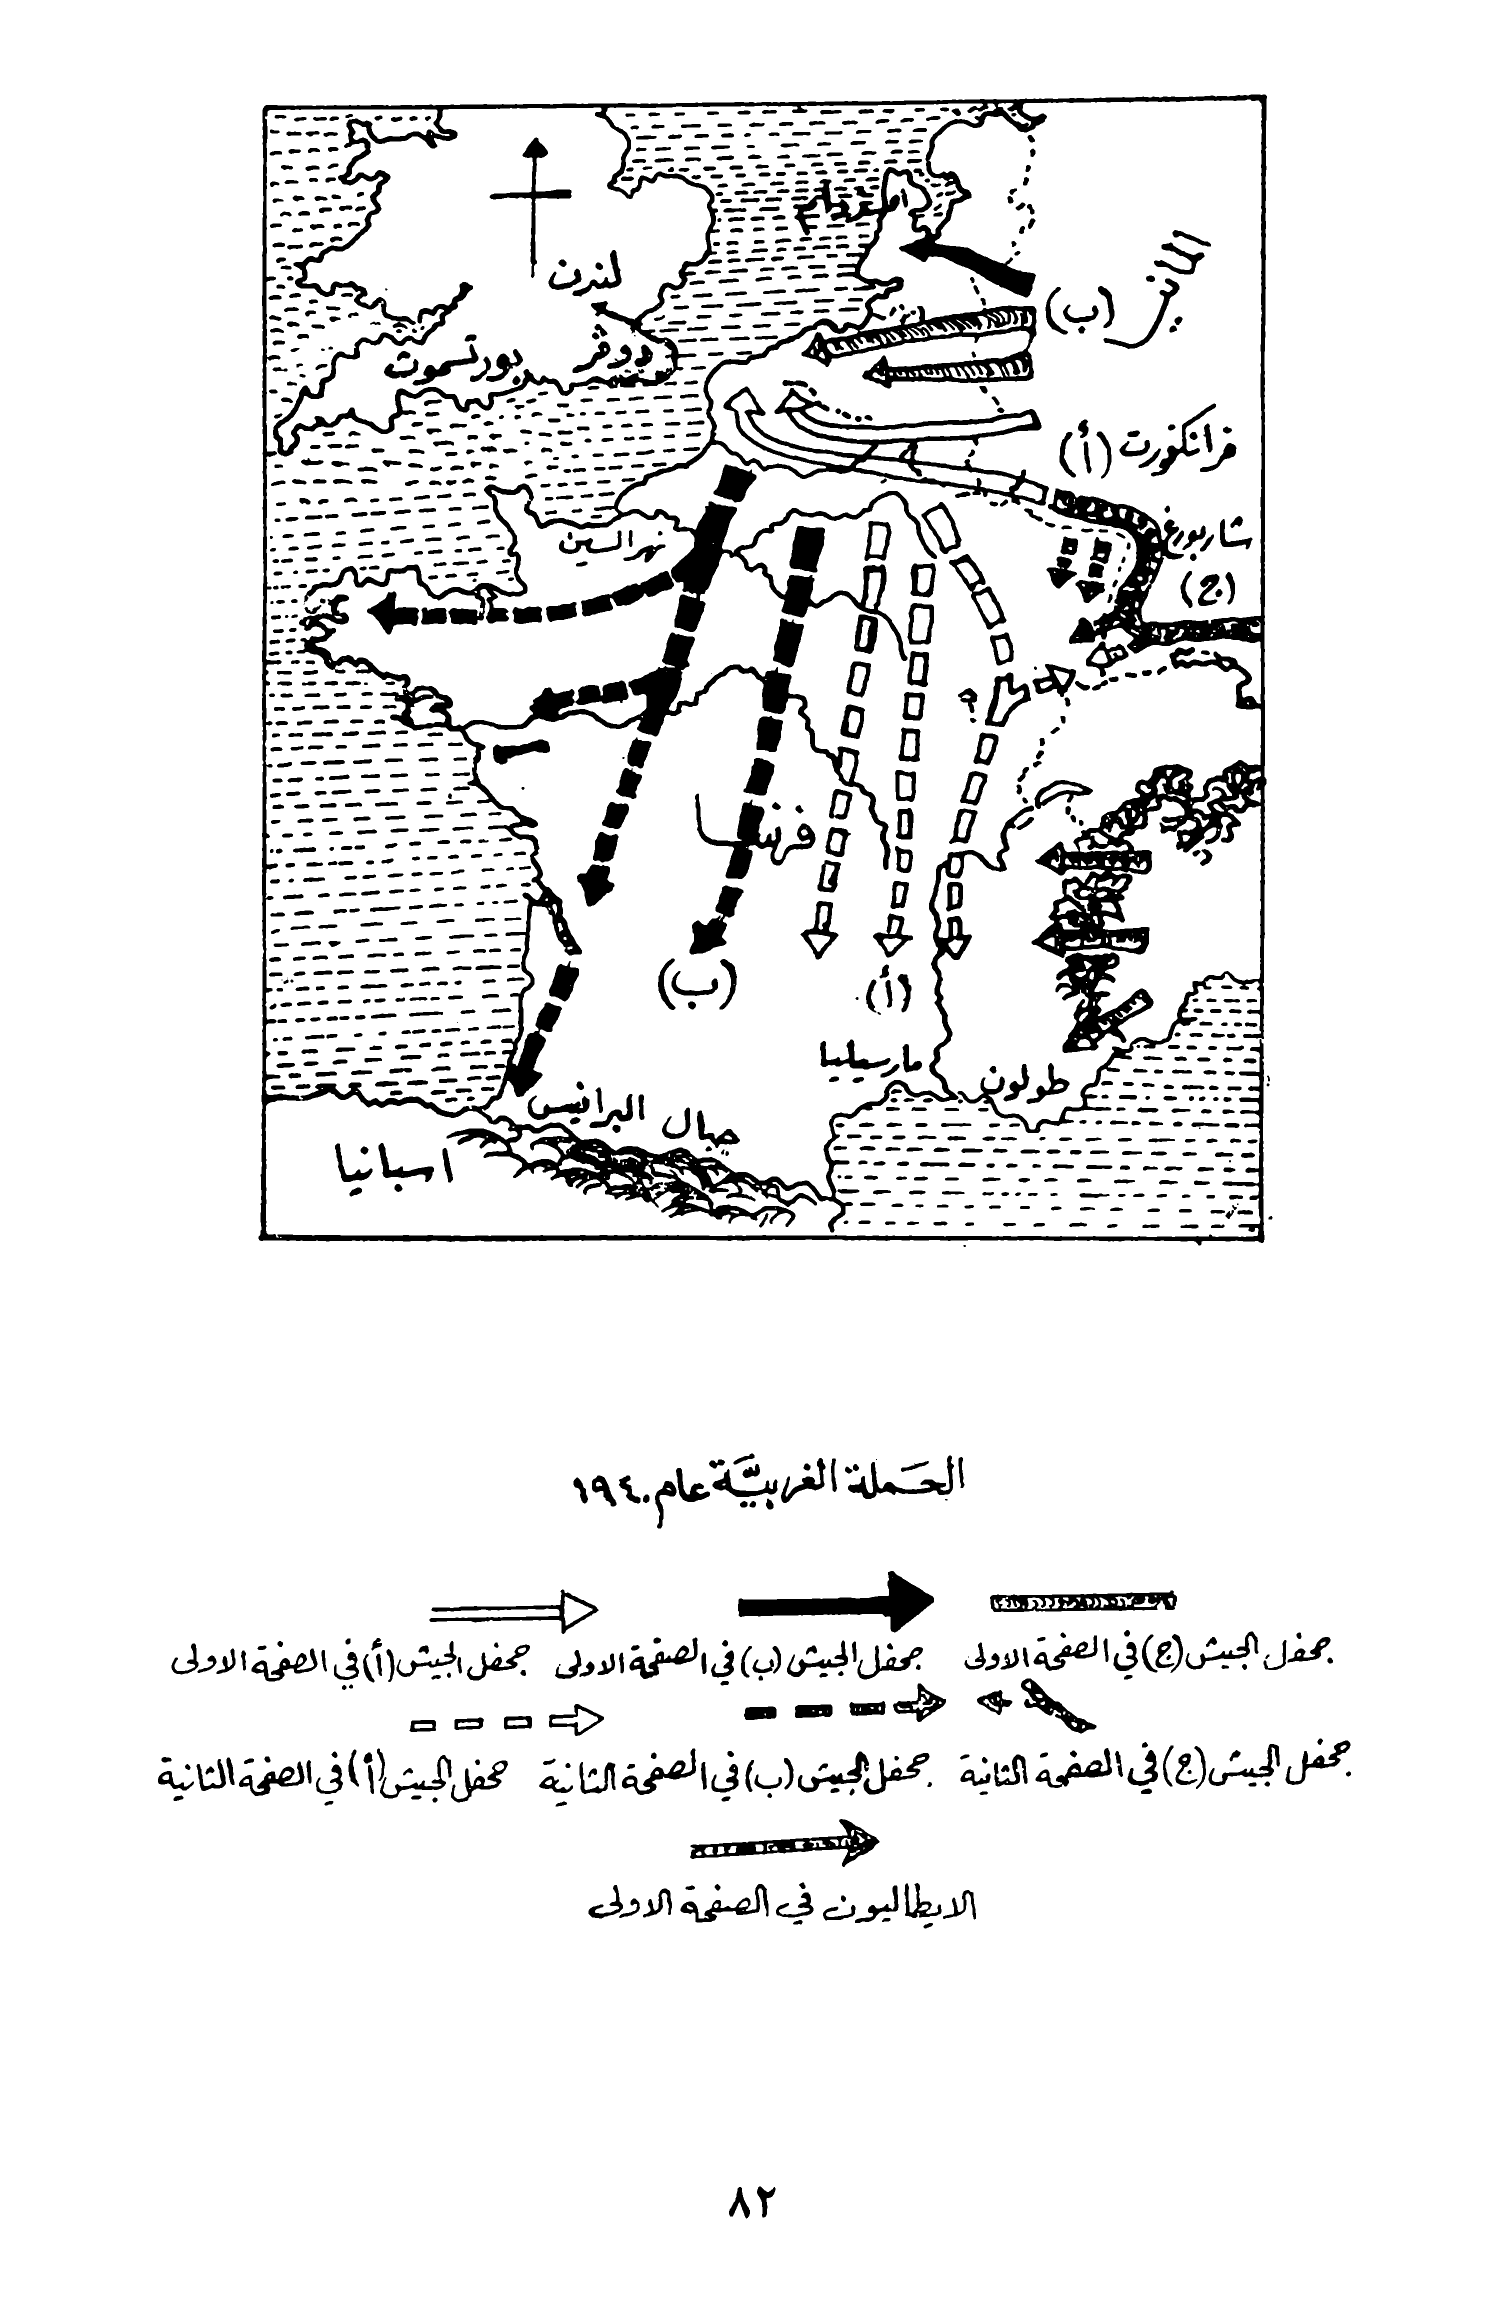 امستردام
لندن
(ب)
دوفر
بورتسموت
فرانكفورت (أ)
شاربورغ
(ج)
نهر السين
فرنسا
(ب)
(أ)
مارسيليا
طولون
جبال البرانيس
اسبانيا
الحملة الغربيّة عام ١٩٤٠
جحفل الجيش (ج) في الصفحة الاولى
جحفل الجيش (ب) في الصفحة الاولى
جحفل الجيش (أ) في الصفحة الاولى
جحفل الجيش (ج) في الصفحة الثانية
جحفل الجيش (ب) في الصفحة الثانية
جحفل الجيش (أ) في الصفحة الثانية
الايطاليون في الصفحة الاولى
٨٢